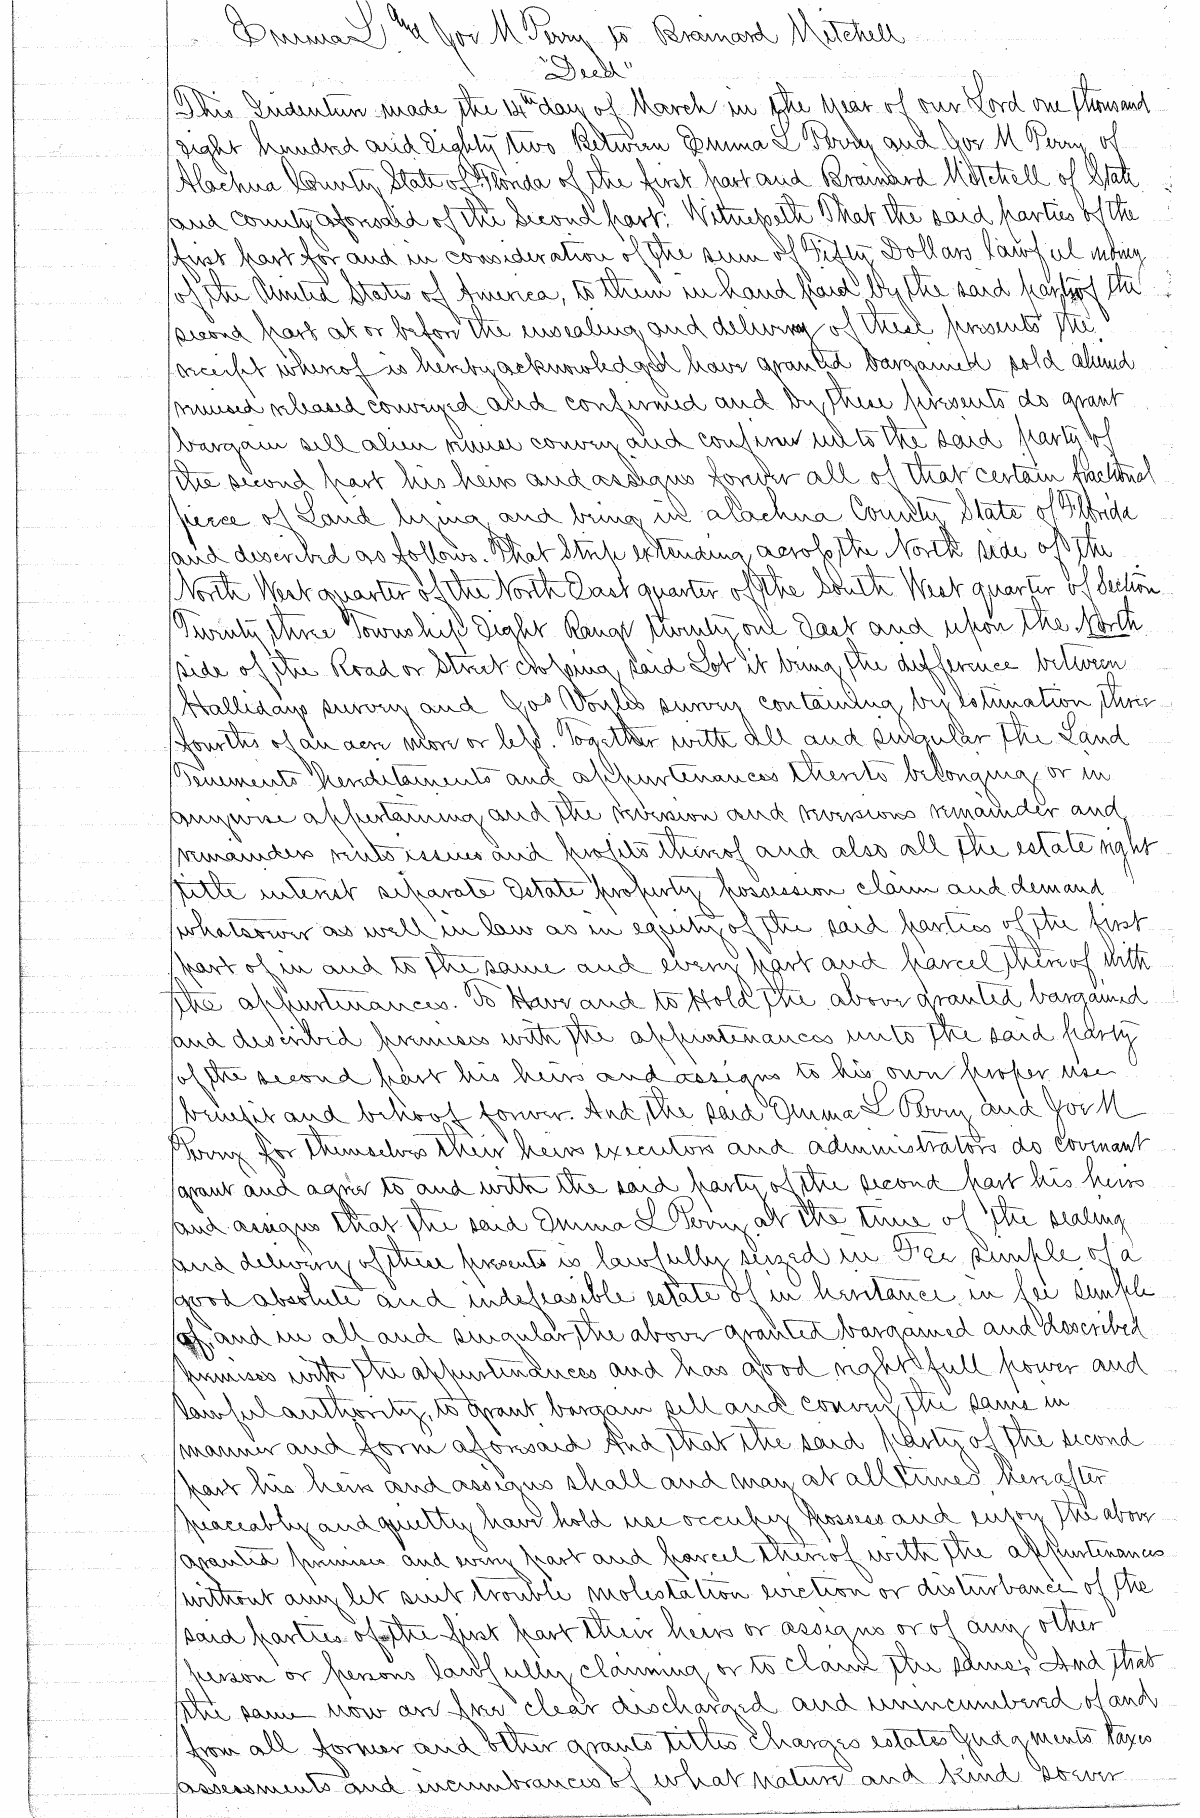 Emma L and Jos M Perry to Brainard Mitchell
"Deed"
This Indenture made the 14th day of March in the Year of our Lord one thousand
Eight hundred and Eighty two Between Emma L Perry and Jos M Perry of
Alachua County State of Florida of the first part and Brainard Mitchell of State
and County aforesaid of the Second part: Witnesseth That the said parties of the
first part for and in consideration of the sum of Fifty Dollars lawful money
of the United States of America, to them in hand paid by the said party of the
second part at or before the ensealing and delivery of these presents the
receipt whereof is hereby acknowledged have granted bargained sold aliened
remised released conveyed and confirmed and by these presents do grant
bargain sell alien remise convey and confirm unto the said party of
the second part his heirs and assigns forever all of that certain fractional
piece of Land lying and being in Alachua County State of Florida
and described as follows. That Strip extending across the North side of the
North West quarter of the North East quarter of the South West quarter of Section
Twenty three Township Eight Range twenty one East and upon the North
side of the Road or Street crossing said Lot it being the difference between
Hallidays survey and Jos Voyles survey containing by estimation three
fourths of an acre more or less. Together with all and singular the Land
Tenements Hereditaments and appurtenances thereto belonging or in
anywise appertaining and the reversion and reversions remainder and
remainders rents issues and profits thereof and also all the estate right
title interest separate Estate property possession claim and demand
whatsoever as well in law as in equity of the said parties of the first
part of in and to the same and every part and parcel thereof with
the appurtenances. To Have and to Hold the above granted bargained
and described premises with the appurtenances unto the said party
of the second part his heirs and assigns to his own proper use
benefit and behoof forever. And the said Emma L Perry and Jos M
Perry for themselves their heirs executors and administrators do covenant
grant and agree to and with the said party of the second part his heirs
and assigns that the said Emma L Perry at the time of the sealing
and delivery of these presents is lawfully seized in Fee simple of a
good absolute and indefeasible estate of in heritance in fee simple
of, and in all and singular the above granted bargained and described
premises with the appurtenances and has good right full power and
lawful authority, to grant bargain sell and convey the same in
manner and form aforesaid And that the said party of the second
part his heirs and assigns shall and may at all times hereafter
peaceably and quietly have hold use occupy possess and enjoy the above
granted premises and every part and parcel thereof with the appurtenances
without any let suit trouble molestation eviction or disturbance of the
said parties of the first part their heirs or assigns or of any other
person or persons lawfully claiming or to claim the same; And that
the same now are free clear discharged and unincumbered of and
from all former and other grants titles charges estates Judgments taxes
assessments and incumbrances of what nature and kind soever